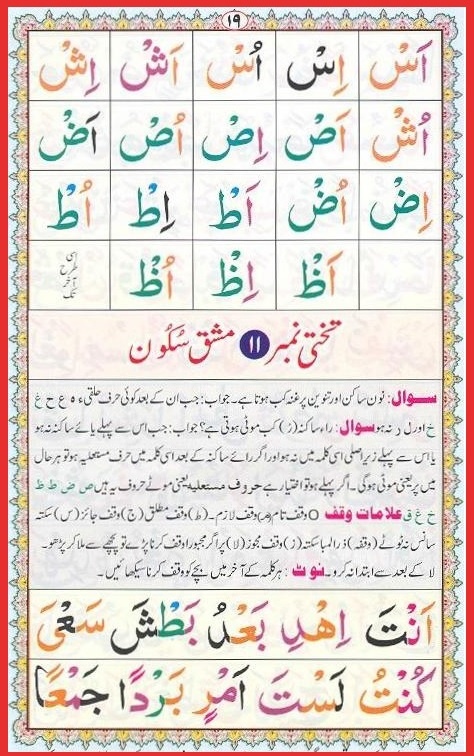 ١٩
اَسْ اِسْ اُسْ اَشْ اِشْ
اُشْ اَصْ اِصْ اُصْ اَضْ
اِضْ اُضْ اَطْ اِطْ اُطْ
اَظْ اِظْ اُظْ اسی طرح آخر تک
تختی نمبر ۱۱ مشق سُکُون
سوال: نون ساکن اور تنوین پر غنہ کب ہوتا ہے۔ جواب: جب ان کے بعد کوئی حرف حلقی ء ہ ع ح غ
خ اور ل ر نہ ہو سوال: راء ساکنہ (رْ) کب موٹی ہوتی ہے؟ جواب: جب اس سے پہلے یائے ساکنہ نہ ہو
یا اس سے پہلے زیر اصلی اسی کلمہ میں نہ ہو اور اگر رائے ساکنہ کے بعد اسی کلمہ میں حرف مستعلیہ ہو تو ہر حال
میں پر یعنی موٹی ہوگی۔ اگر پہلے ہو تو اختیار ہے حروف مستعلیہ یعنی موٹے حروف یہ ہیں ص ض ط ظ
خ غ ق علامات وقف O وقف تام (مـ) وقف لازم۔ (ط) وقف مطلق (ج) وقف جائز (س) سکتہ
سانس نہ ٹوٹے (وقفہ) ذرا لمبا سکتہ (ز) وقف مجوز (لا) پر اگر مجبوراً وقف کرنا پڑے تو پیچھے سے ملا کر پڑھو۔
لا کے بعد سے ابتدا نہ کرو۔ نوٹ: ہر کلمہ کے آخر میں بچے کو وقف کرنا سیکھائیں۔
اَنْتَ اِهْدِ بَعْدُ بَطْشَ سَعْیَ
كُنْتُ لَسْتَ اَمْرٍ بَرْدًا جَمْعًا